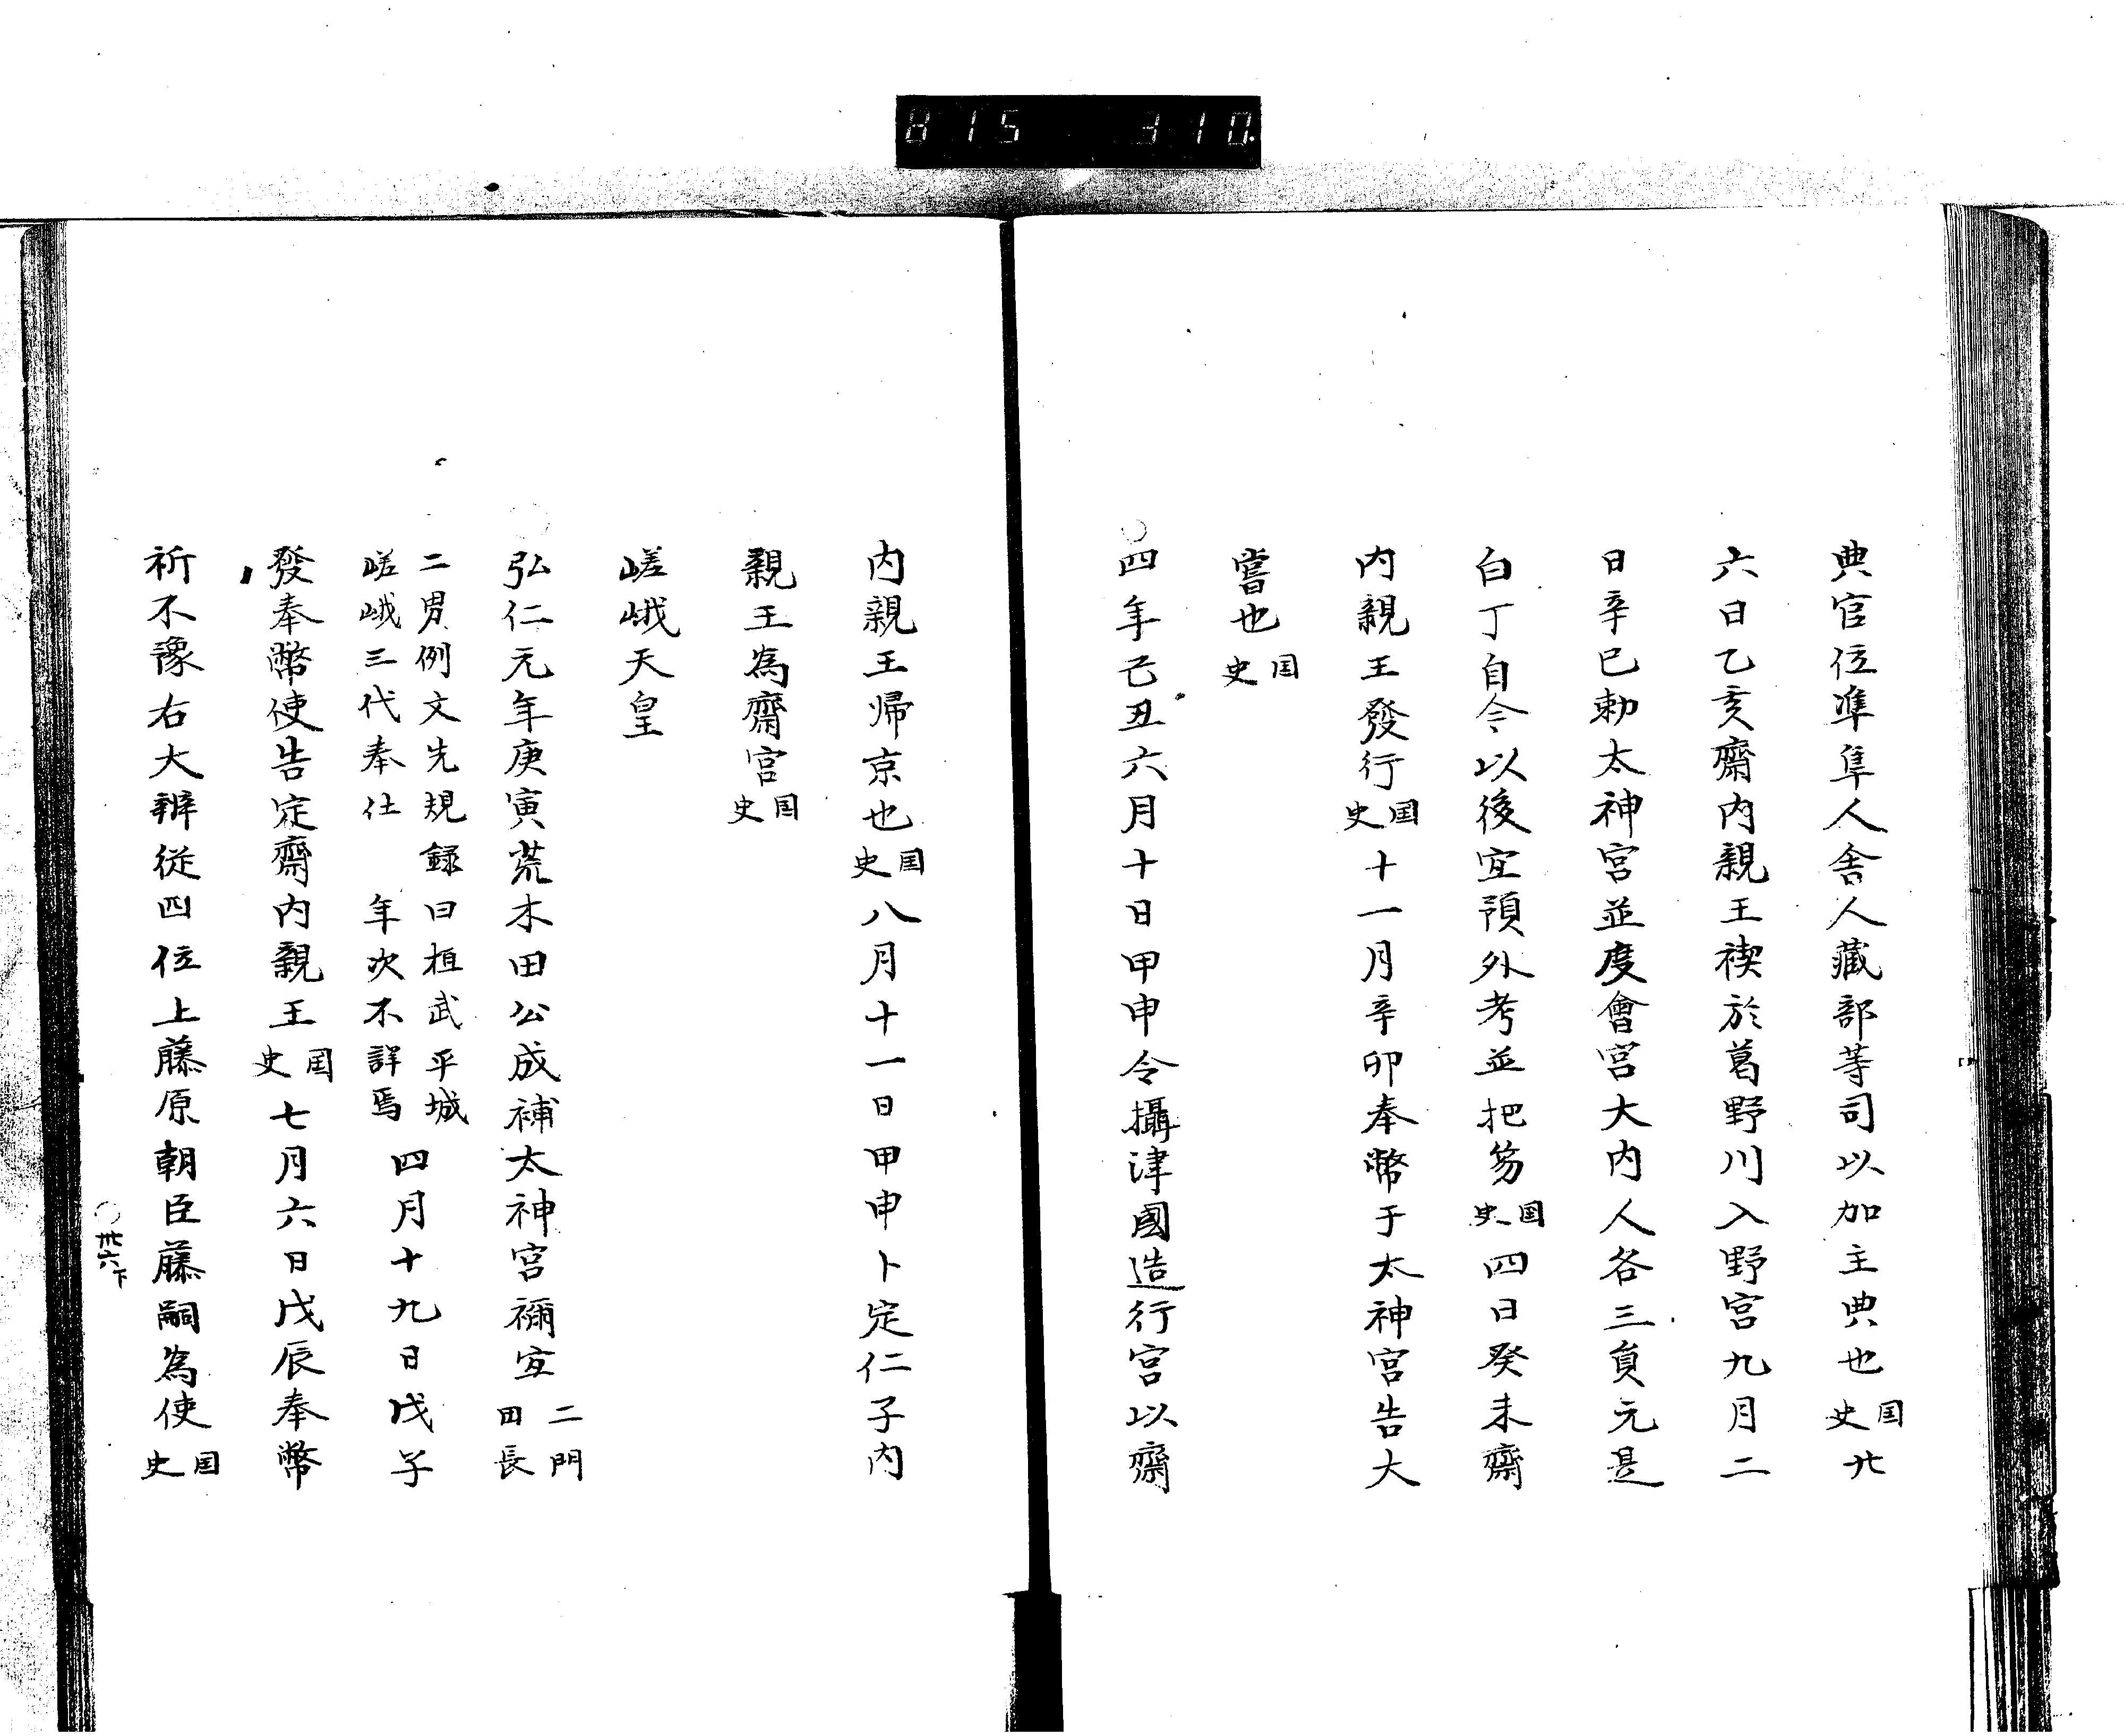 815 310
典官位準隼人舎人藏部等司以加主典也国史廿
六日乙亥齋内親王禊於葛野川入野宮九月二
日辛巳勅太神宮並度會宮大内人各三員元是
白丁自今以後宜預外考並把笏国史四日癸未齋
内親王發行国史十一月辛卯奉幣于太神宮告大
嘗也国史
四年己丑六月十日甲申令攝津國造行宮以齋
内親王帰京也国史八月十一日甲申卜定仁子内
親王為齋宮国史
嵯峨天皇
弘仁元年庚寅荒木田公成補太神宮禰宜二門田長
二男例文先規録曰桓武平城嵯峨三代奉仕年次不詳焉四月十九日戊子
發奉幣使告定齋内親王国史七月六日戊辰奉幣
祈不豫右大辨從四位上藤原朝臣藤嗣為使国史
卅六下